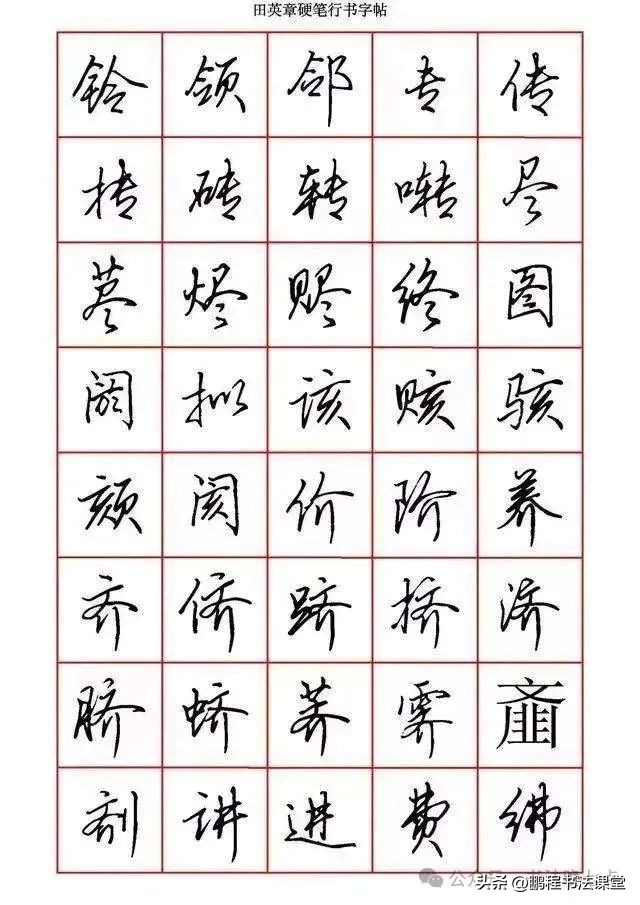 田英章硬笔行书字帖
铃 领 邻 专 传
抟 砖 转 啭 尽
荩 烬 赆 终 图
拟 该 赅 骇
颏 阂 价 阶 养
齐 侪 跻 挤 济
脐 蛴 荠 霁 齑
剂 讲 进 费 绋
公众号
头条 @鹏程书法课堂